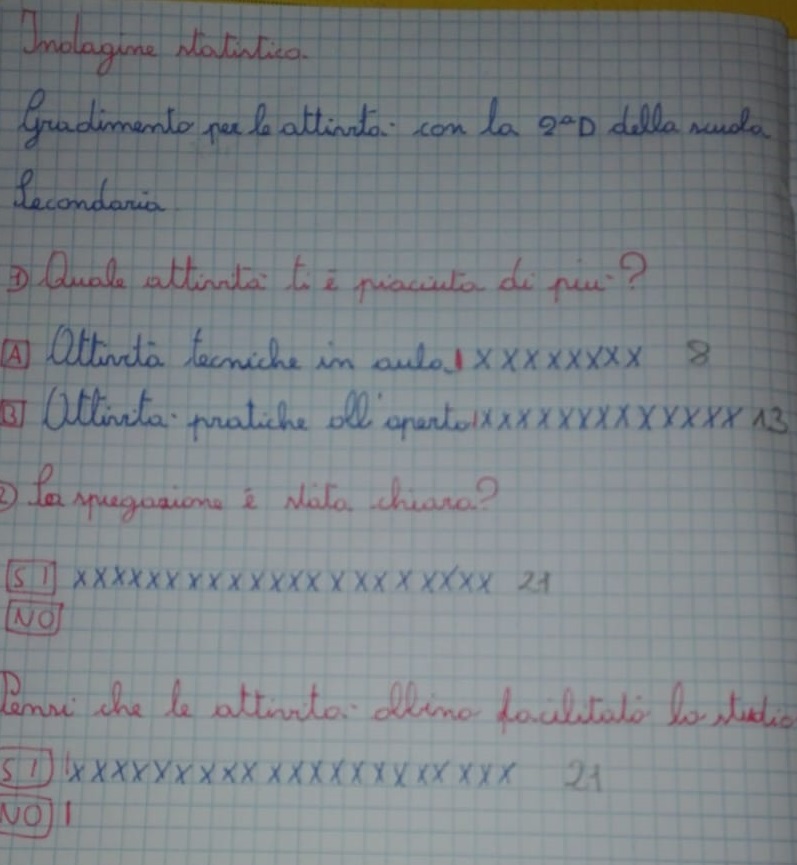 Indagine statistica.
Gradimento per le attività con la 2ªD della scuola
Secondaria
1) Quale attività ti è piaciuta di più?
A Attività tecniche in aula | XXXXXXXX 8
B Attività pratiche all'aperto | XXXXXXXXXXXXX 13
2) La spiegazione è stata chiara?
SI XXXXXXXXXXXXXXXXXXXXX 21
NO
Pensi che le attività abbino facilitato lo studio
SI | XXXXXXXXXXXXXXXXXXXXX 21
NO |